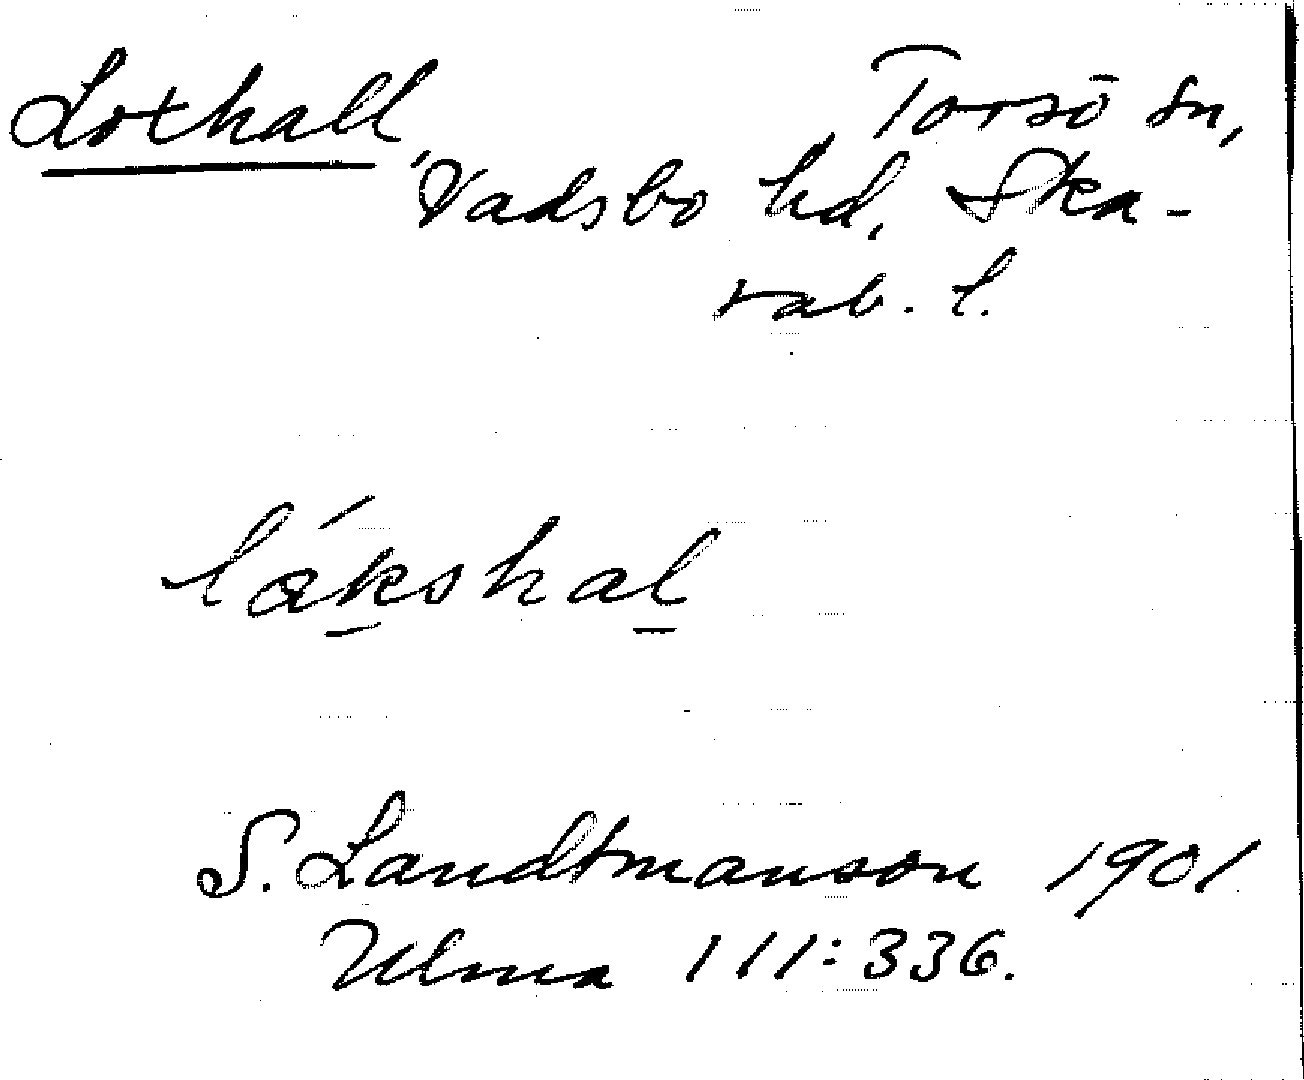 Lothall, Torsö sn,
Vadsbo hd, Ska-
rab. l.
lákshal
S. Landtmanson 1901
Ulma 111:336.